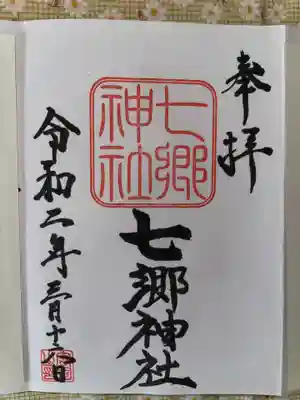 奉拝
七郷神社
七郷神社
令和二年三月十六日